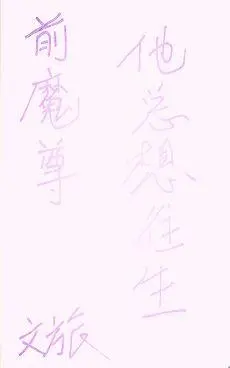 前魔尊
他总想往生
文旅